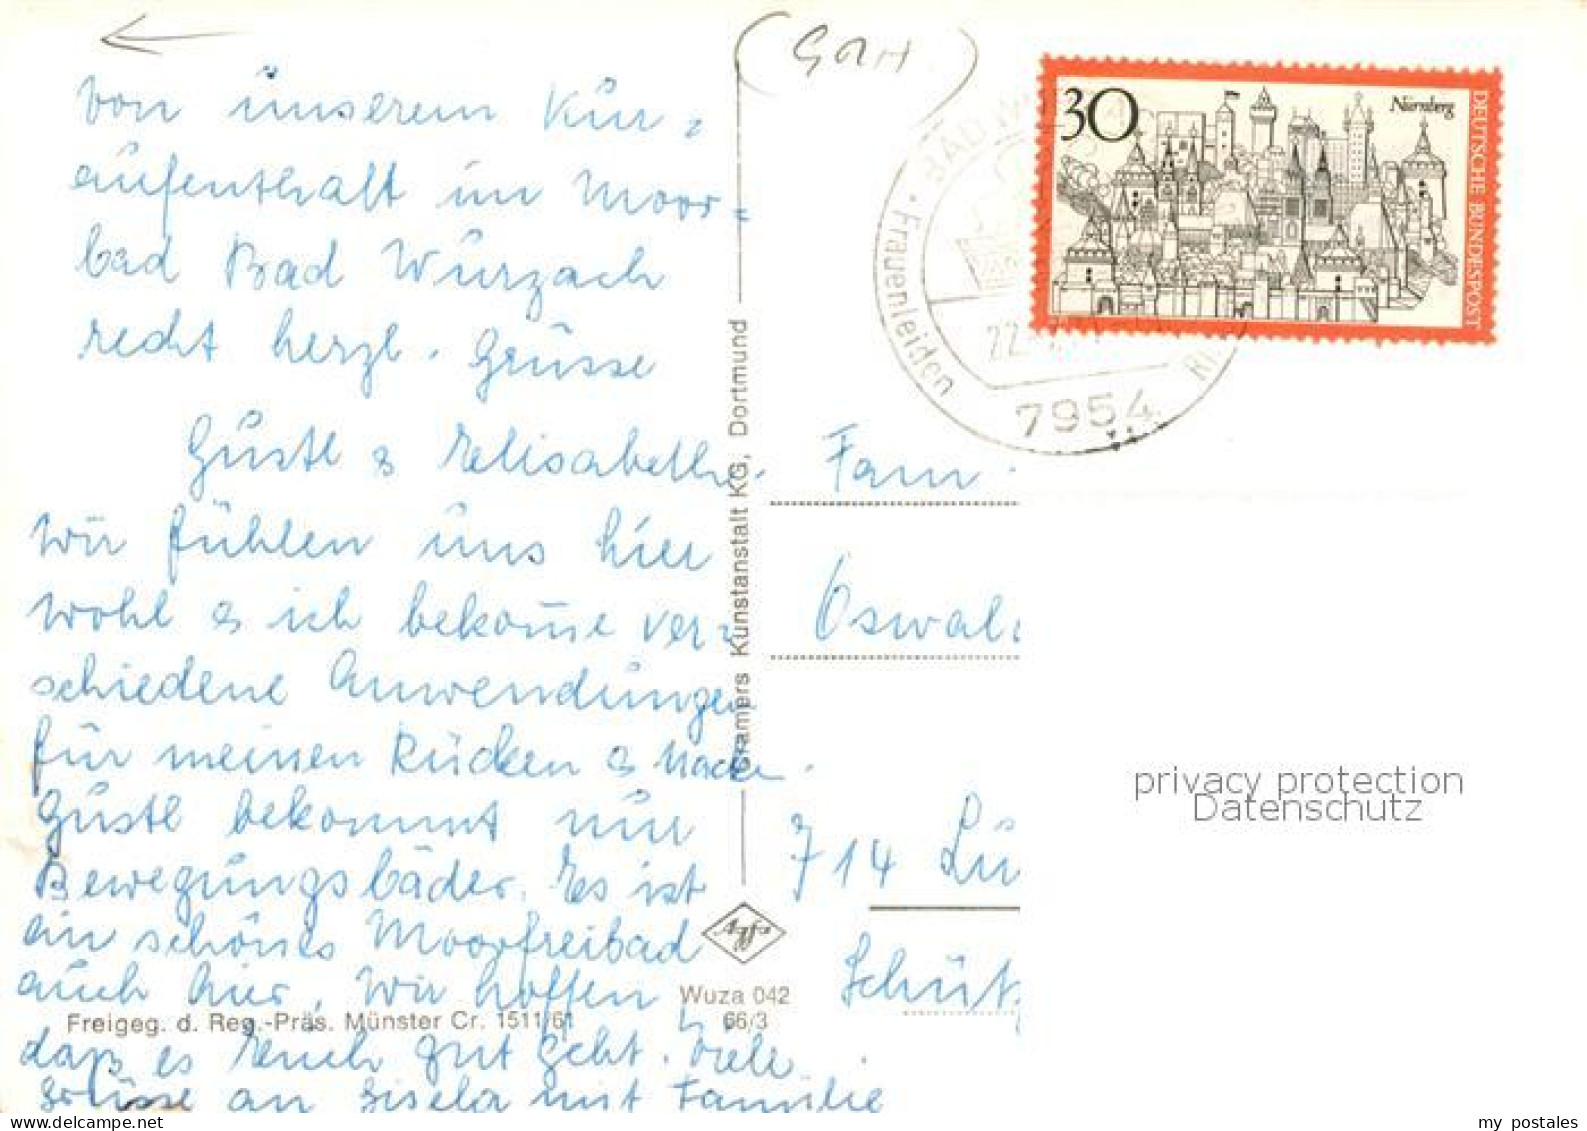 Von unserem Kur=
aufenthalt im Moor=
bad Bad Wurzach
recht herzl. Grüsse
Gustl & Elisabeth.
Wir fühlen uns hier
wohl & ich bekom̄e ver=
schiedene Anwendungen
für meinen Rücken & Nacken.
Gustl bekommt nur
Bewegungsbäder. Es ist
ein schönes Moorfreibad
auch hier. Wir hoffen
daß es Euch gut geht. Viele
Grüsse an Gisela mit Familie
Freigeg. d. Reg.-Präs. Münster Cr. 1511/61
Cramers Kunstanstalt KG, Dortmund
Agfa
Wuza 042
66/3
30
Nürnberg
DEUTSCHE BUNDESPOST
BAD
Frauenleiden
22
7954
Fam.
Oswal
714 Lu
Schütz
privacy protection
Datenschutz
my postales